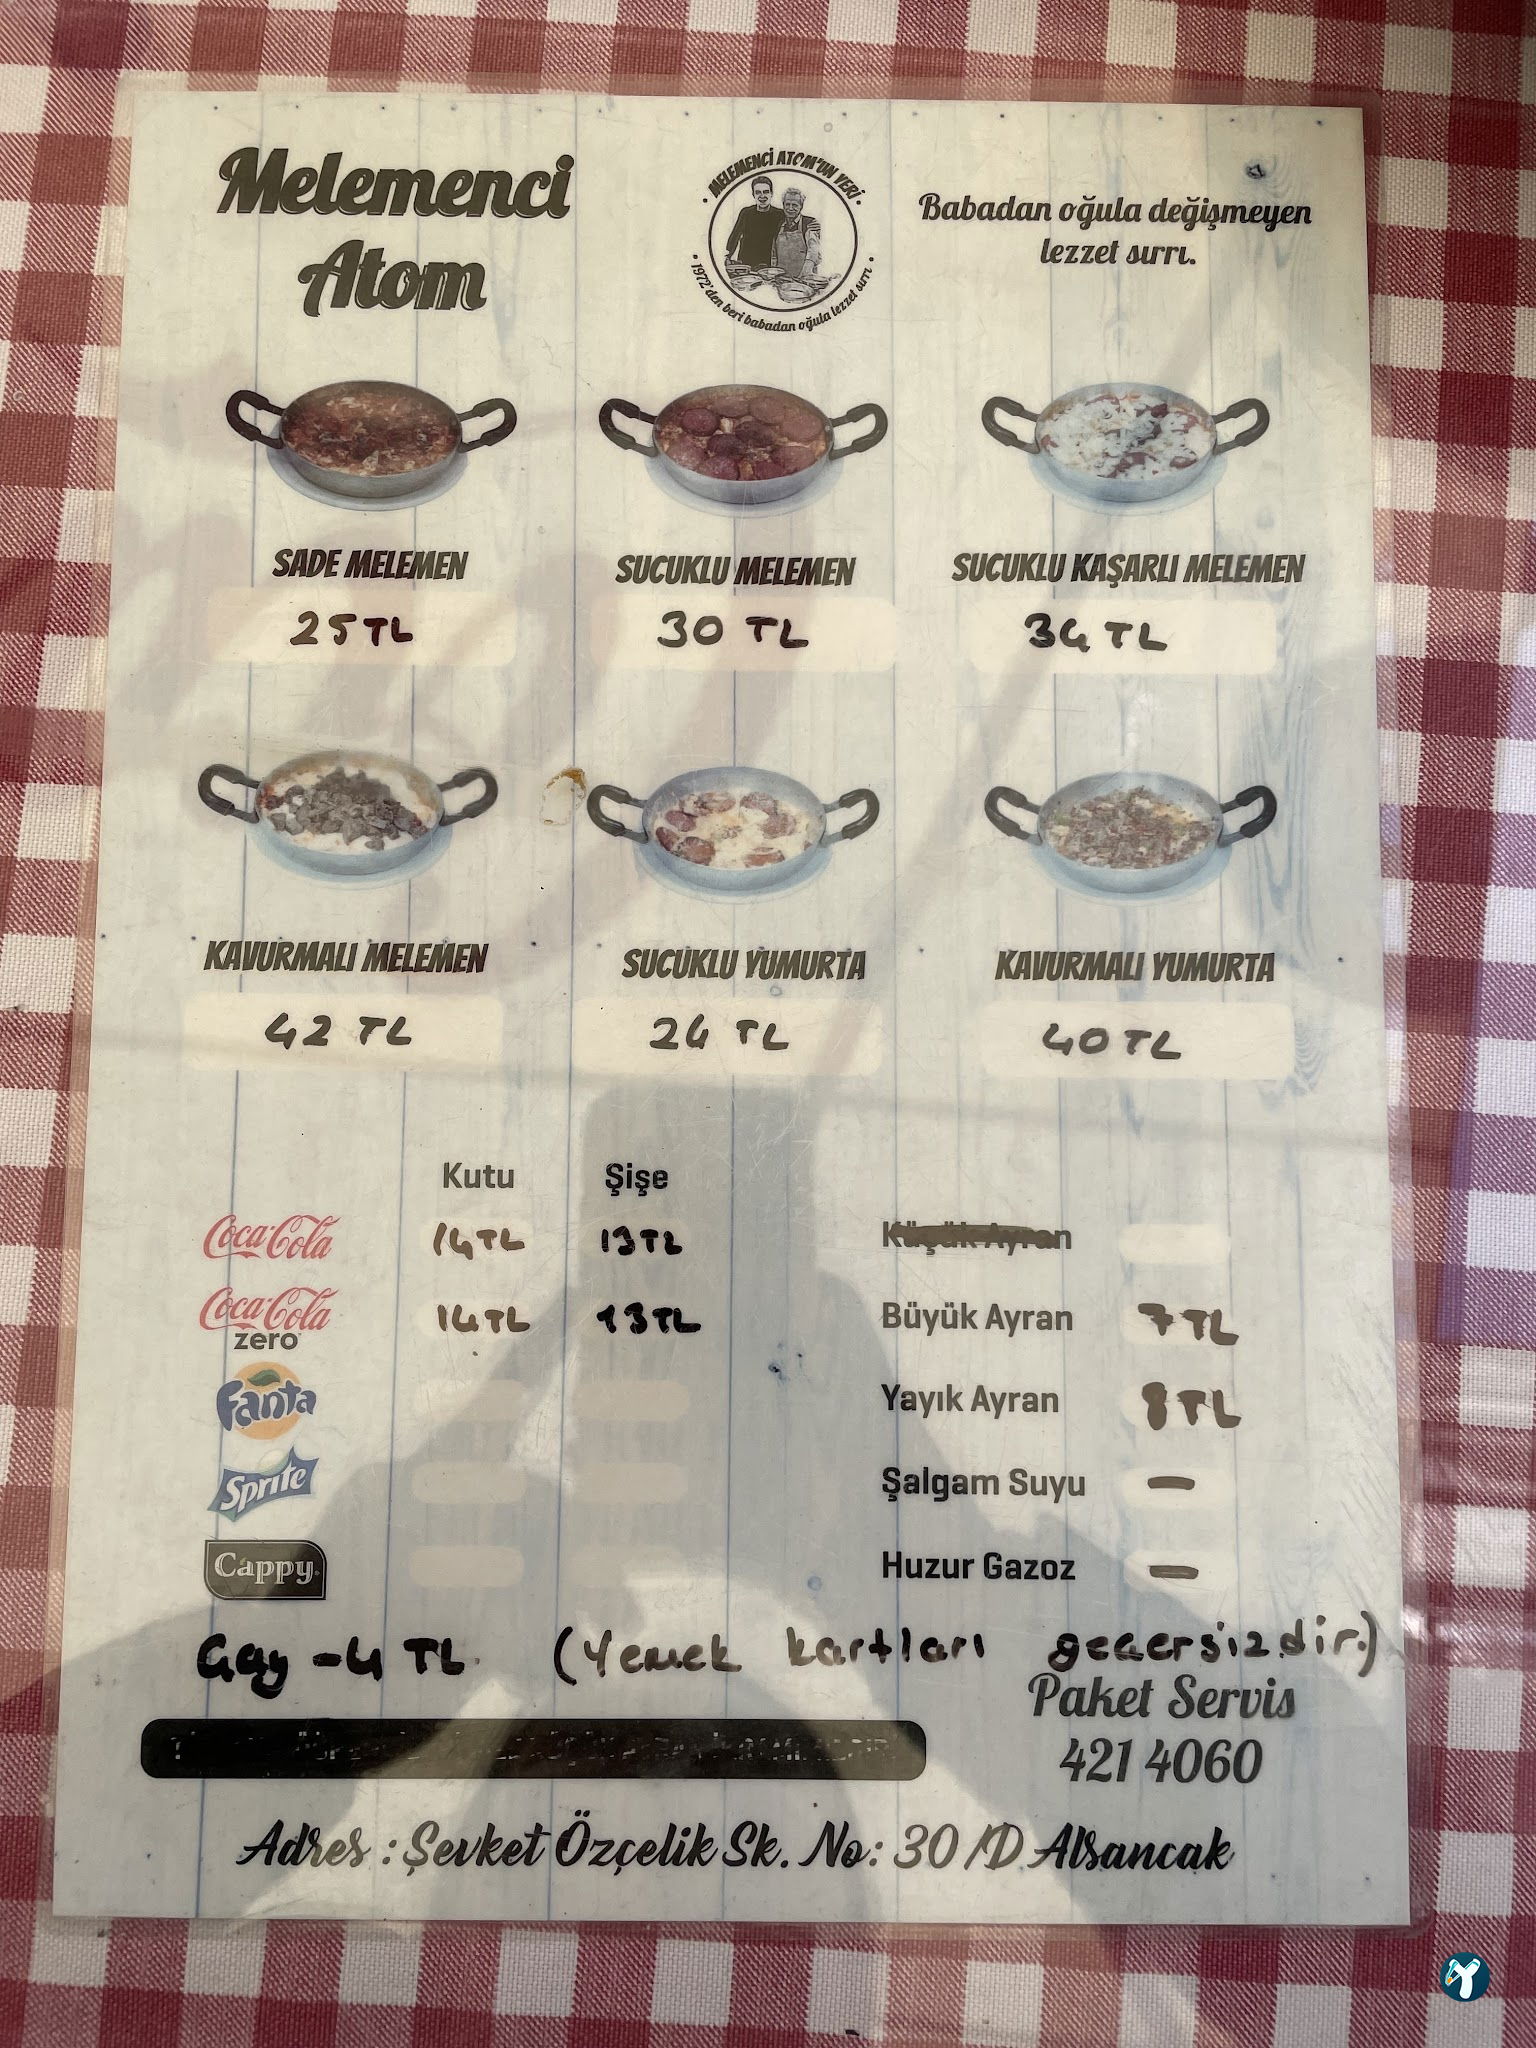 Melemenci
Atom
MELEMENCİ ATOM'UN YERİ
1972'den beri babadan oğula lezzet sırrı
Babadan oğula değişmeyen
lezzet sırrı.
SADE MELEMEN
25 TL
SUCUKLU MELEMEN
30 TL
SUCUKLU KAŞARLI MELEMEN
34 TL
KAVURMALI MELEMEN
42 TL
SUCUKLU YUMURTA
24 TL
KAVURMALI YUMURTA
40 TL
Kutu Şişe
Coca-Cola 14 TL 13 TL
Coca-Cola zero 14 TL 13 TL
Fanta
Sprite
Cappy
Küçük Ayran
Büyük Ayran 7 TL
Yayık Ayran 8 TL
Şalgam Suyu —
Huzur Gazoz —
Çay - 4 TL (Yemek kartları geçersizdir.)
Paket Servis
421 4060
Adres : Şevket Özçelik Sk. No: 30/D Alsancak